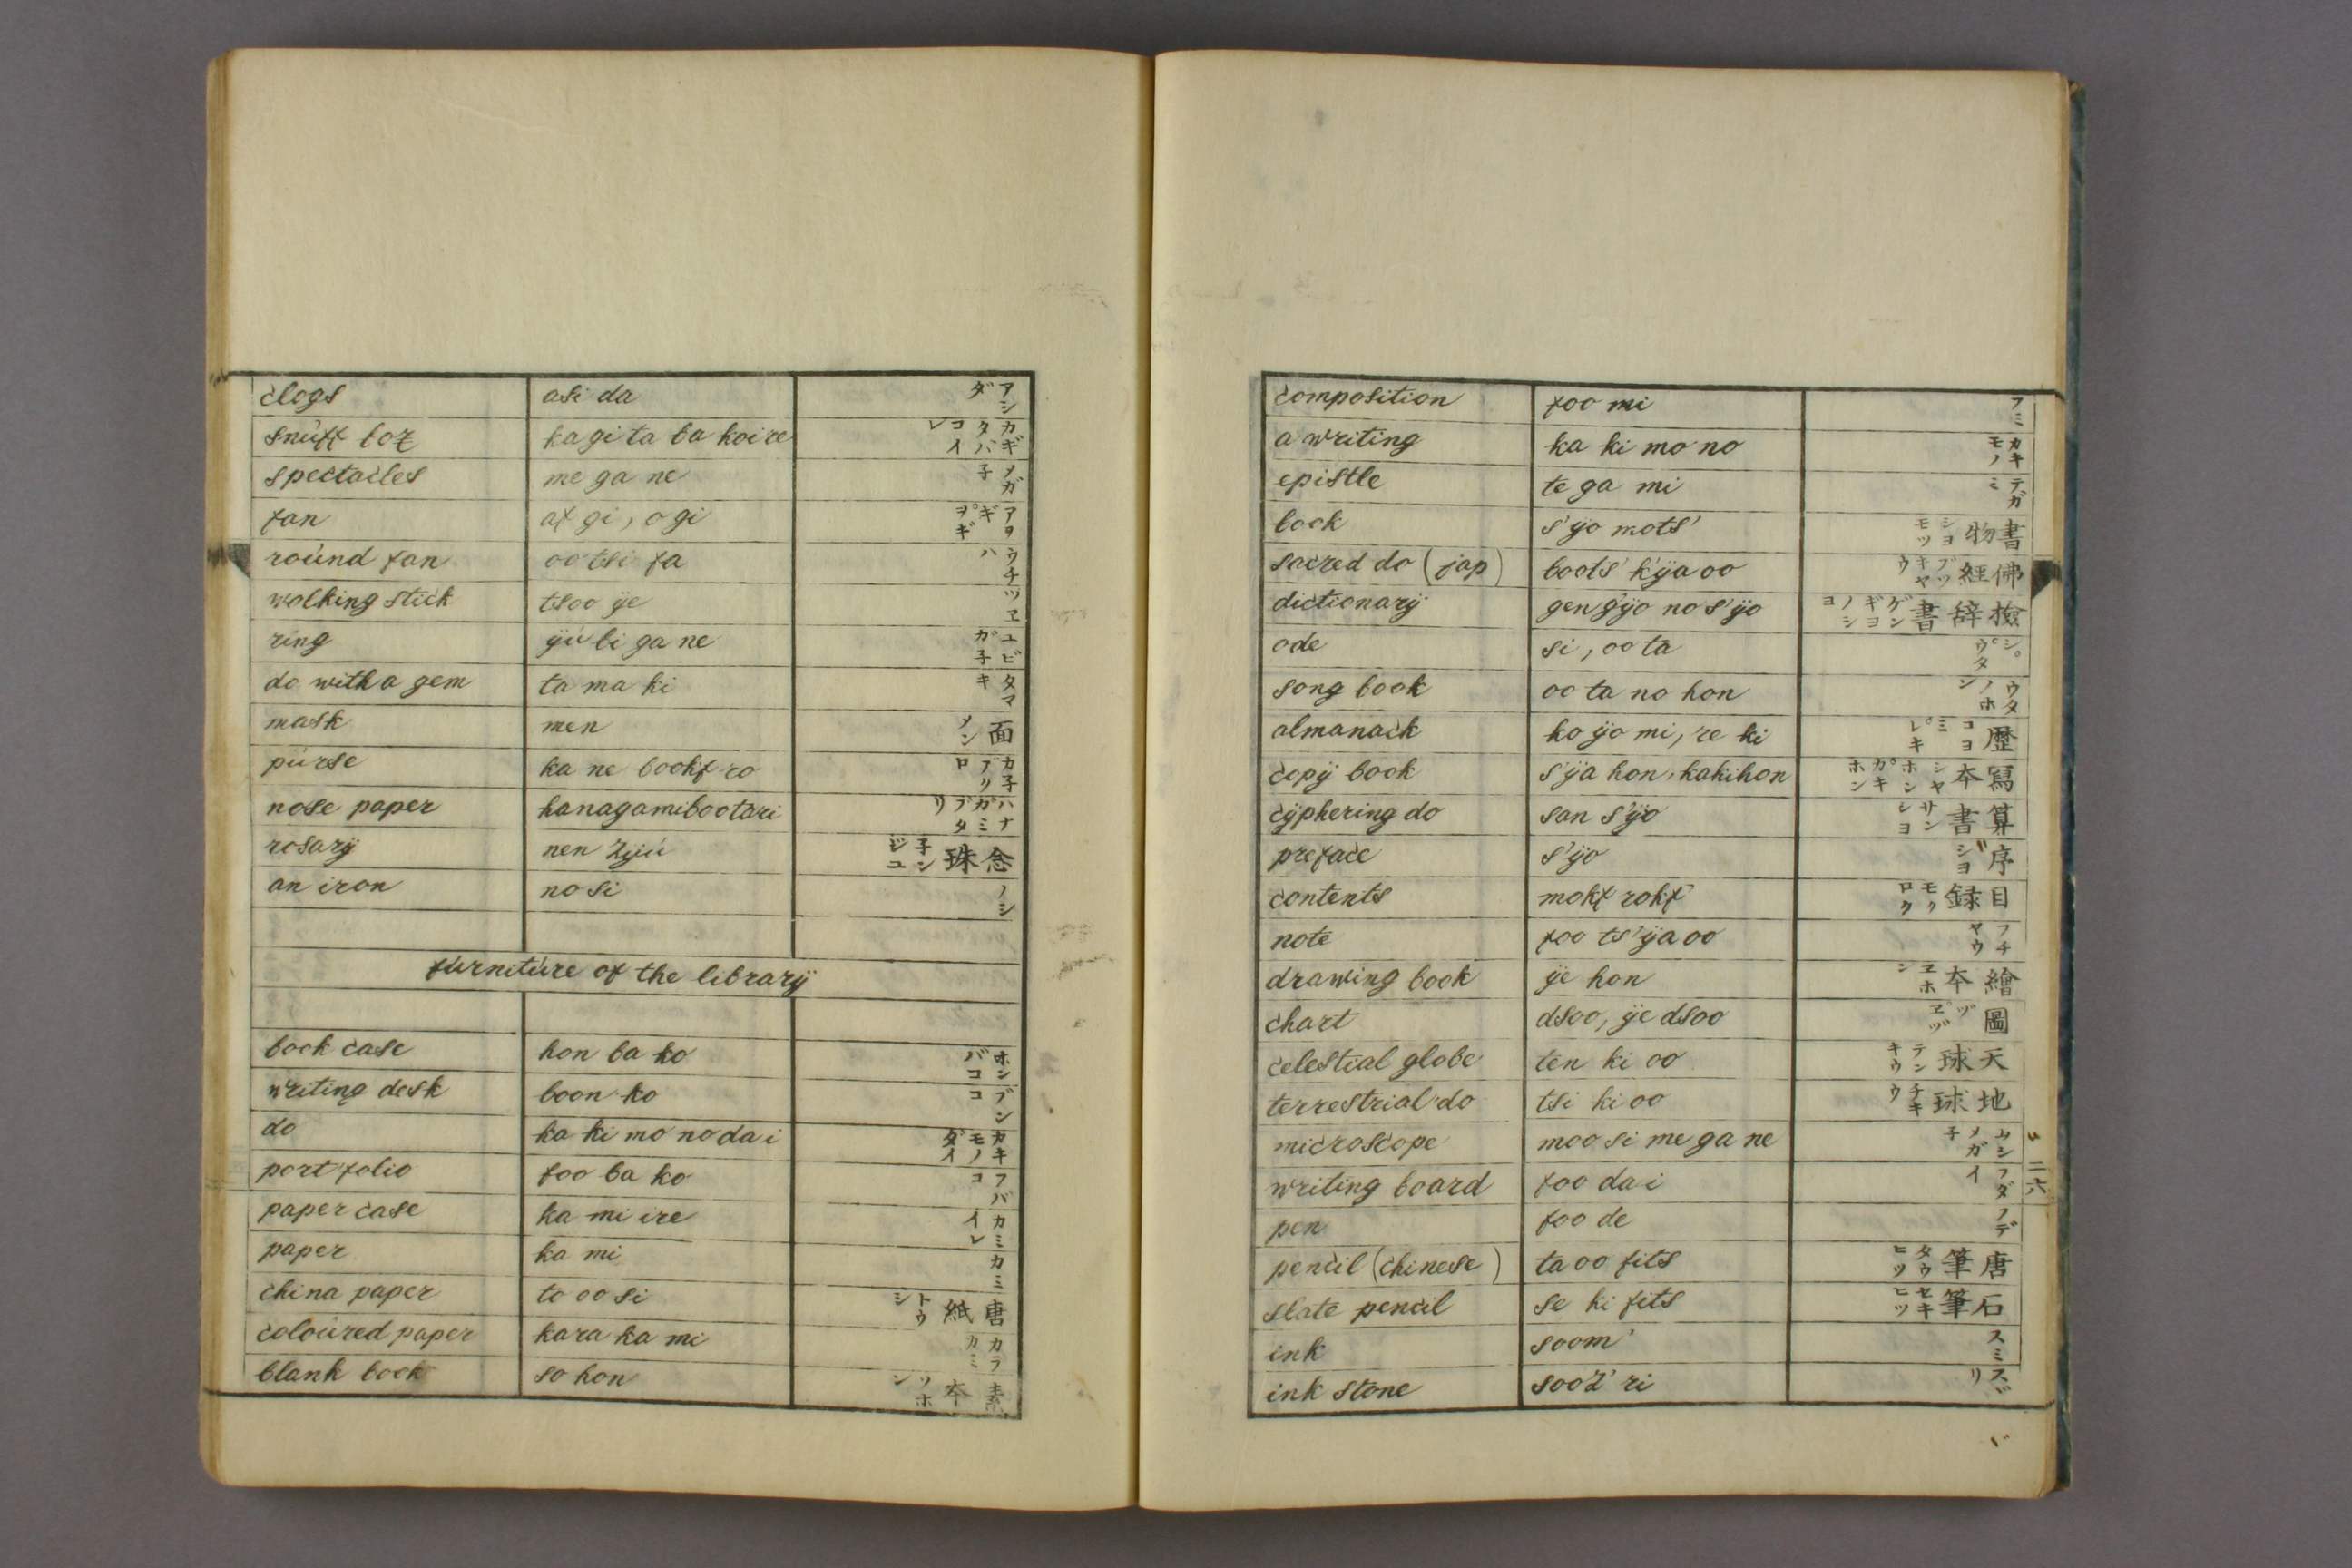 clogs asi da アシダ
snuff box kagi ta ba koire カギタバコイレ
spectacles me ga ne メガ子
fan af gi, o gi アヲギ ヲ゚ギ
round fan oo tsi fa ウチハ
walking stick tsoo ÿe ツヱ
ring ÿu bi ga ne ユビガ子
do with a gem ta ma ki タマキ
mask men 面 メン
purse ka ne bookf ro カ子ブクロ
nose paper hanagamibootari ハナガミブタリ
rosarÿ nen zÿu 念珠 子ンジユ
an iron no si ノシ
furniture of the librarÿ
book case hon ba ko ホンバコ
writing desk boon ko ブンコ
do ka ki mo no da i カキモノダイ
port folio foo ba ko フバコ
paper case ka mi ire カミイレ
paper ka mi カミ
china paper to oo si 唐紙 トウシ
coloured paper kara ka mi カラカミ
blank book so hon 素本 ソホン
composition foo mi フミ
a writing ka ki mo no カキモノ
epistle te ga mi テガミ
book s'ÿo mots' 書物 シヨモツ
sacred do (jap) boots' k'ÿa oo 佛経 ブツキヤウ
dictionarÿ gen g'ÿo no s'ÿo 撿辞書 ゲンギヨノシヨ
ode si, oo ta シ゚ウ゚タ
song book oo ta no hon ウタノホン
almanack ko ÿo mi, re ki 歴 コヨミ レ゚キ
copÿ book s'ÿa hon, kakihon 寫本 シヤホン カ゚キホン
cÿphering do san s'ÿo 算書 サンシヨ
preface s'ÿo 序 ジヨ
contents mokf rokf 目録 モクロク
note foo ts'ÿa oo フチヤウ
drawing book ÿe hon 繪本 ヱホン
chart dsoo, ÿe dsoo 圖 ヅ ヱ゚ヅ
celestial globe ten ki oo 天球 テンキウ
terrestrial do tsi ki oo 地球 チキウ
microscope moo si me ga ne ムシメガ子
writing board foo da i フダイ
pen foo de フデ
pencil (chinese) ta oo fits 唐筆 タウヒツ
slate pencil se ki fits 石筆 セキヒツ
ink soom' スミ
ink stone sooz' ri スヾリ
二六